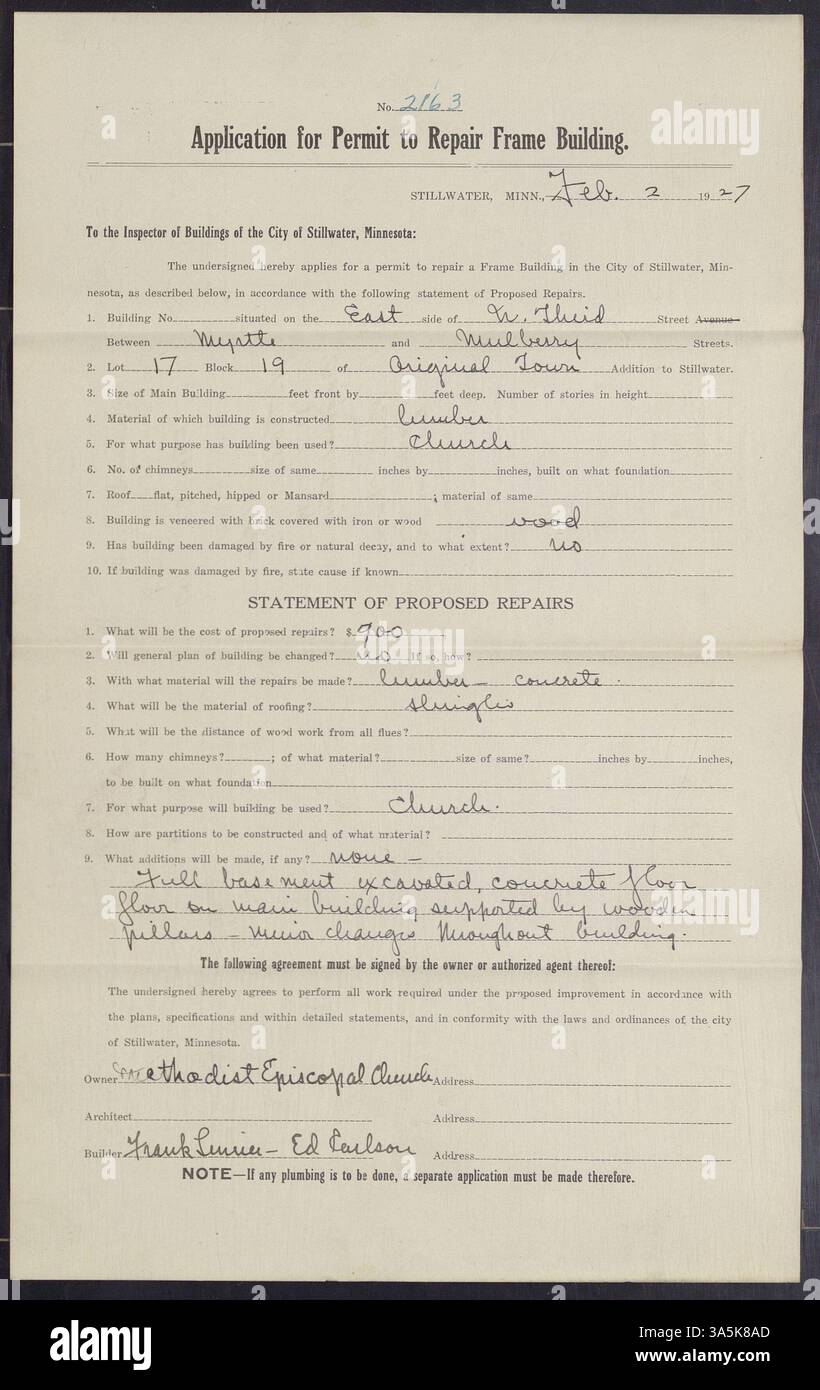 No. 2163
Application for Permit to Repair Frame Building.
STILLWATER, MINN., Feb. 2 1927
To the Inspector of Buildings of the City of Stillwater, Minnesota:
The undersigned hereby applies for a permit to repair a Frame Building in the City of Stillwater, Min-
nesota, as described below, in accordance with the following statement of Proposed Repairs.
1. Building No. situated on the East side of N. Third Street Avenue
Between Myrtle and Mulberry Streets.
2. Lot 17 Block 19 of Original Town Addition to Stillwater.
3. Size of Main Building feet front by feet deep. Number of stories in height
4. Material of which building is constructed lumber
5. For what purpose has building been used? Church
6. No. of chimneys size of same inches by inches, built on what foundation
7. Roof flat, pitched, hipped or Mansard ; material of same
8. Building is veneered with brick covered with iron or wood wood
9. Has building been damaged by fire or natural decay, and to what extent? no
10. If building was damaged by fire, state cause if known
STATEMENT OF PROPOSED REPAIRS
1. What will be the cost of proposed repairs? $ 900
2. Will general plan of building be changed? no If so, how?
3. With what material will the repairs be made? lumber - concrete.
4. What will be the material of roofing? shingles
5. What will be the distance of wood work from all flues?
6. How many chimneys? ; of what material? size of same? inches by inches,
to be built on what foundation
7. For what purpose will building be used? Church.
8. How are partitions to be constructed and of what material?
9. What additions will be made, if any? none -
Full basement excavated, concrete floor
floor on main building supported by wooden
pillars - minor changes throughout building.
The following agreement must be signed by the owner or authorized agent thereof:
The undersigned hereby agrees to perform all work required under the proposed improvement in accordance with
the plans, specifications and within detailed statements, and in conformity with the laws and ordinances of the city
of Stillwater, Minnesota.
Owner Methodist Episcopal Church Address
Architect Address
Builder Frank - Ed Address
NOTE—If any plumbing is to be done, a separate application must be made therefore.
alamy
Image ID: 3A5K8AD
www.alamy.com